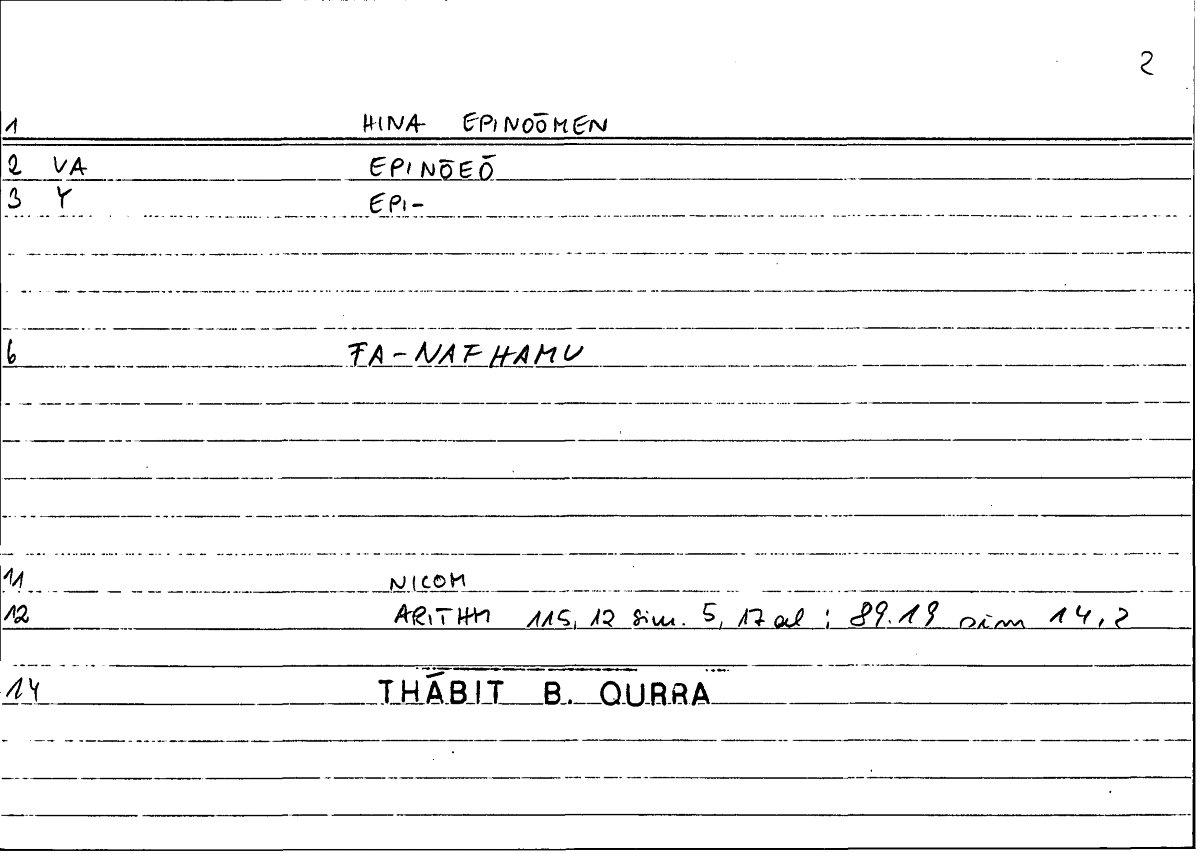 2
1 HINA EPINOŌMEN
2 VA EPINŌEŌ
3 Y EPI-
6 FA-NAFHAMU
11 NICOM
12 ARITHM 115, 12 sim. 5, 17 al ; 89.19 sim 14,2
14 THĀBIT B. QURRA